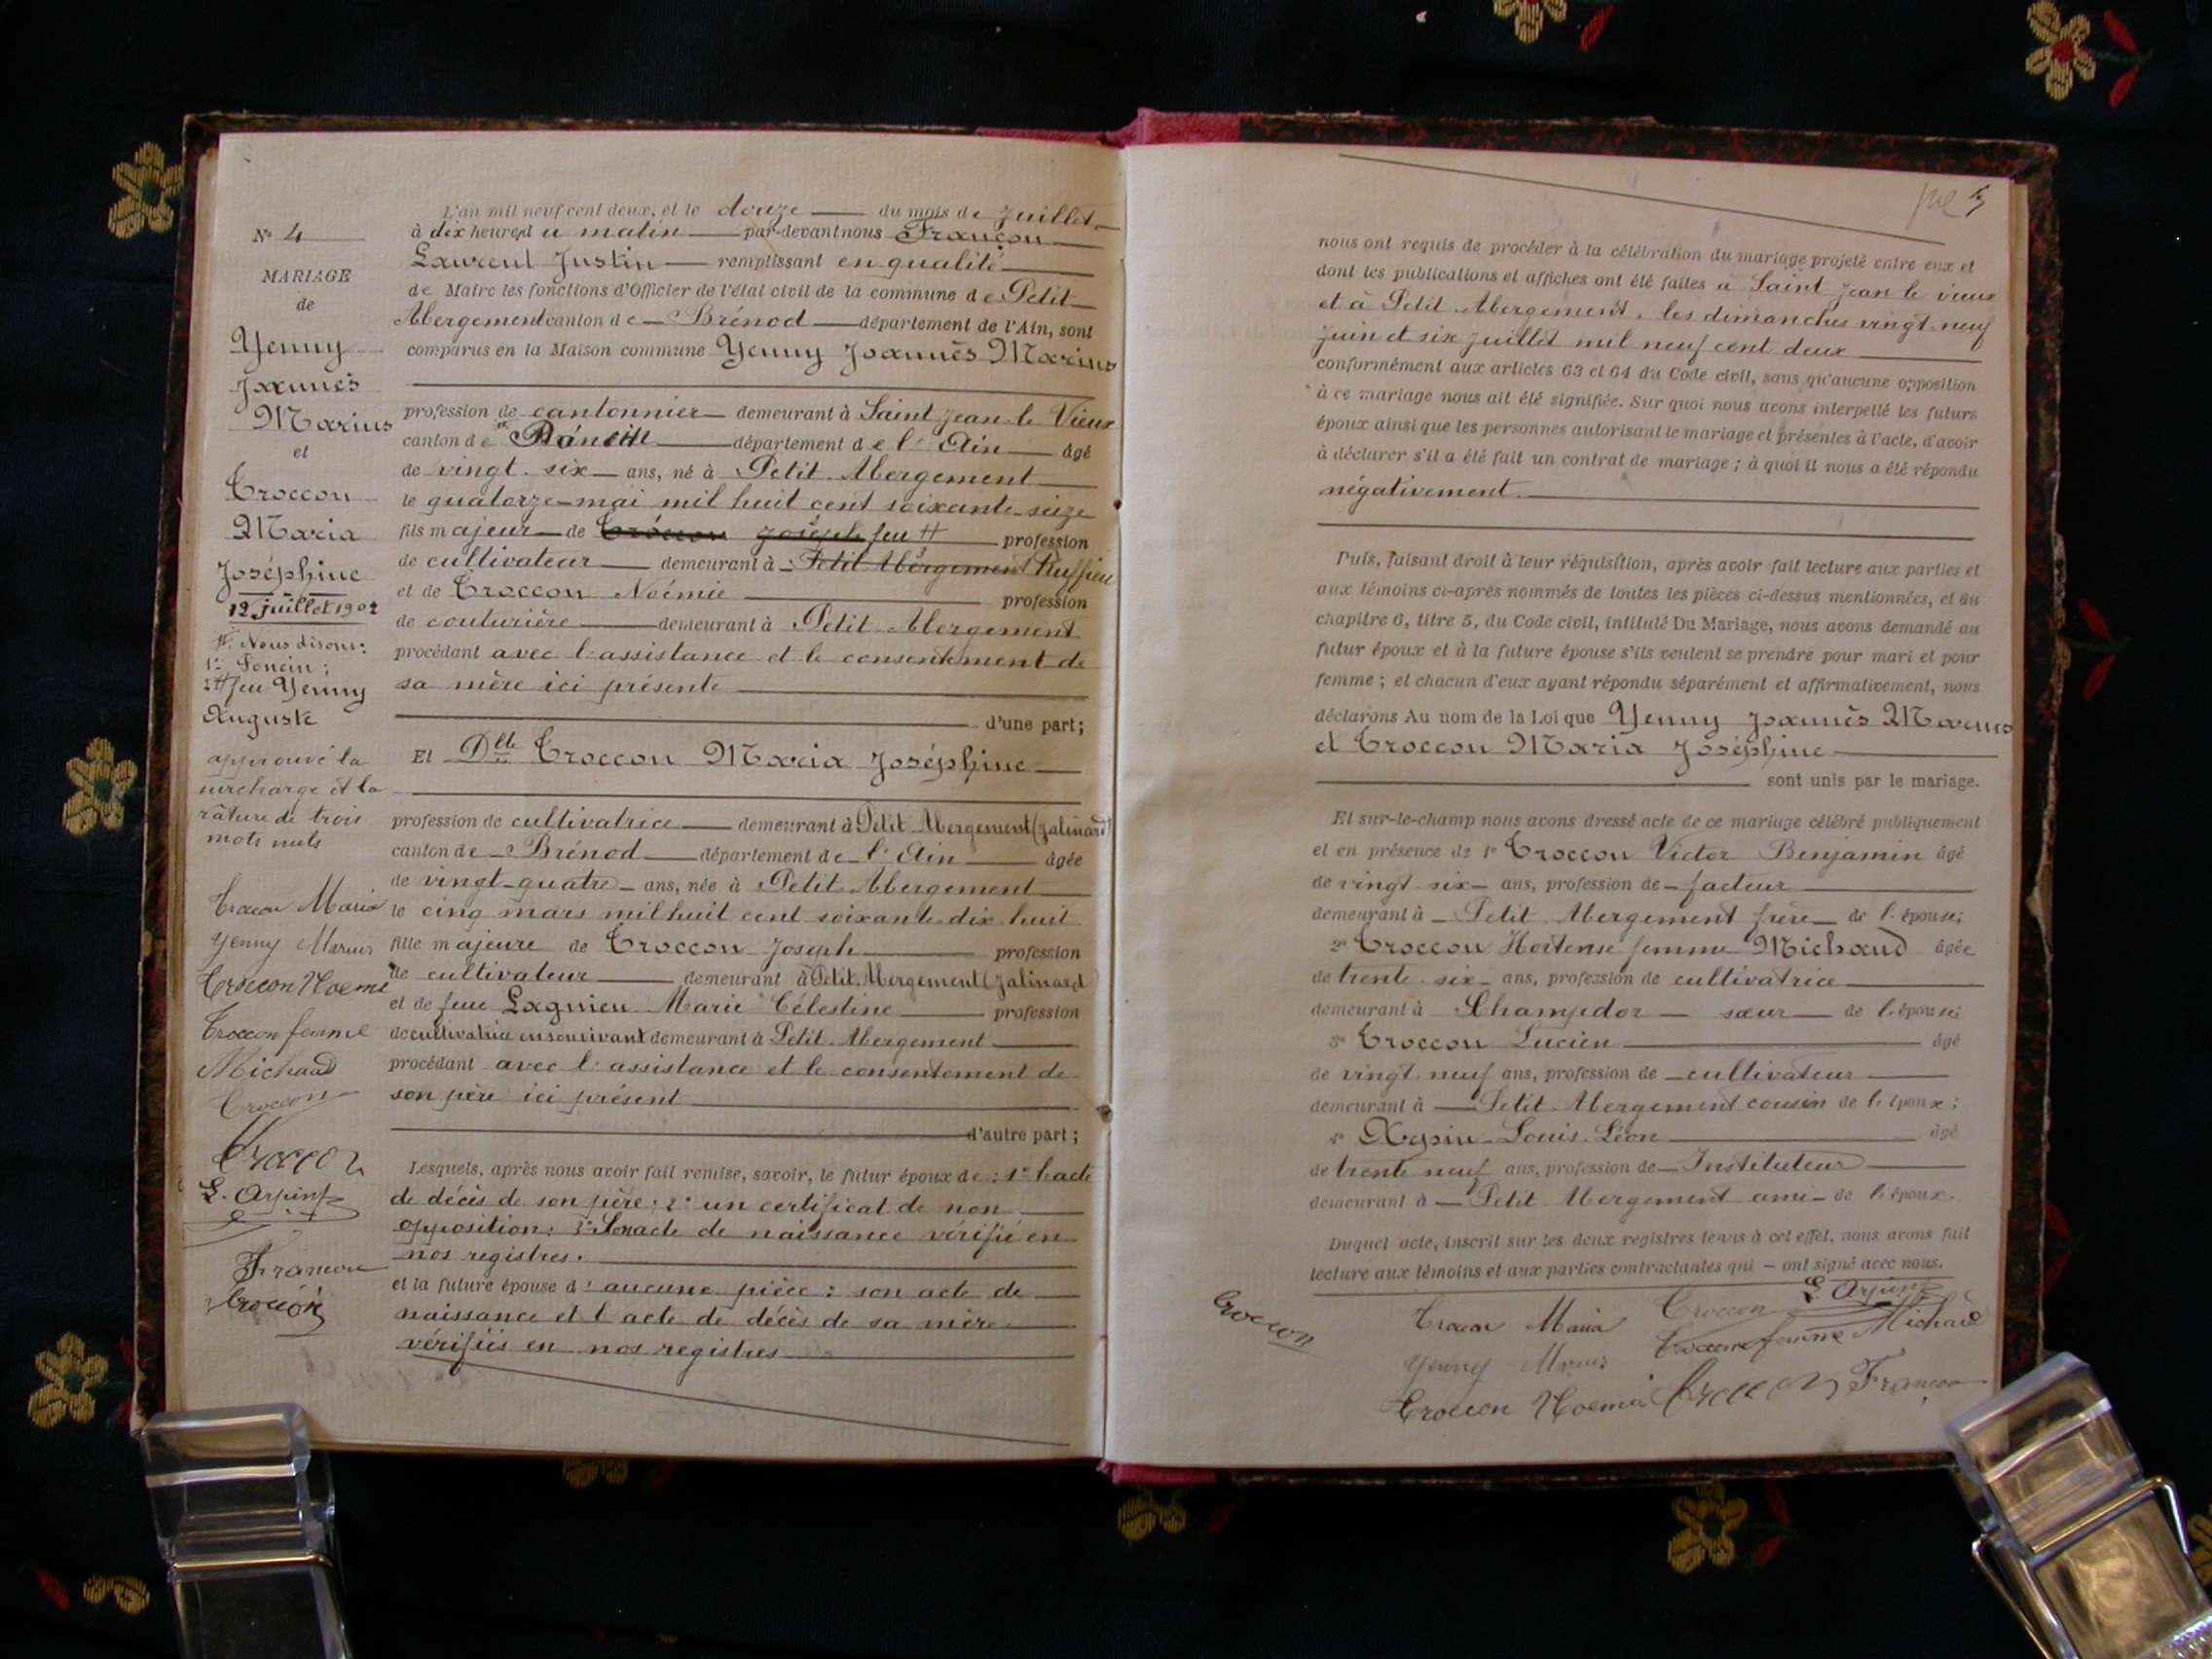 N° 4
MARIAGE
de
Yenny
Joannès
Marius
et
Troccon
Maria
Joséphine
12 juillet 1902
# Nous disons:
1° Poncin;
2° # feu Yenny
Auguste
approuvé la
surcharge et la
râture de trois
mots nuls
Troccon Maria
Yenny Marius
Troccon Noemie
Troccon femme
Michaud
Troccon
Troccon
L. Arpin
Françon
Troccon
L'an mil neuf cent deux, et le douze du mois de Juillet
à dix heures du matin par-devant nous Françon
Laurent Justin remplissant en qualité
de Maire les fonctions d'Officier de l'état civil de la commune de Petit
Abergement canton de Brénod département de l'Ain, sont
comparus en la Maison commune Yenny Joannès Marius
profession de cantonnier demeurant à Saint Jean le Vieux
canton de département de l'Ain âgé
de vingt-six ans, né à Petit-Abergement
le quatorze mai mil huit cent soixante-seize
fils majeur de Troccon Joseph feu # profession
de cultivateur demeurant à Petit Abergement Ruffieu
et de Troccon Noémie profession
de couturière demeurant à Petit-Abergement
procédant avec l'assistance et le consentement de
sa mère ici présente
d'une part;
Et Dlle Troccon Maria Joséphine
profession de cultivatrice demeurant à Petit-Abergement (Jalinard)
canton de Brénod département de l'Ain âgée
de vingt-quatre ans, née à Petit-Abergement
le cinq mars mil huit cent soixante-dix-huit
fille majeure de Troccon Joseph profession
de cultivateur demeurant à Petit-Abergement (Jalinard)
et de feue Lagnieu Marie Célestine profession
de cultivatrice en son vivant demeurant à Petit-Abergement
procédant avec l'assistance et le consentement de
son père ici présent
d'autre part;
Lesquels, après nous avoir fait remise, savoir, le futur époux de: 1° l'acte
de décès de son père; 2° un certificat de non
opposition; 3° Son acte de naissance vérifié en
nos registres.
et la future épouse d'aucune pièce: son acte de
naissance et l'acte de décès de sa mère
vérifiés en nos registres
nous ont requis de procéder à la célébration du mariage projeté entre eux et
dont les publications et affiches ont été faites à Saint Jean le vieux
et à Petit-Abergement, les dimanches vingt-neuf
juin et six juillet mil neuf cent deux
conformément aux articles 63 et 64 du Code civil, sans qu'aucune opposition
à ce mariage nous ait été signifiée. Sur quoi nous avons interpellé les futurs
époux ainsi que les personnes autorisant le mariage et présentes à l'acte, d'avoir
à déclarer s'il a été fait un contrat de mariage; à quoi il nous a été répondu
négativement.
Puis, faisant droit à leur réquisition, après avoir fait lecture aux parties et
aux témoins ci-après nommés de toutes les pièces ci-dessus mentionnées, et du
chapitre 6, titre 5, du Code civil, intitulé Du Mariage, nous avons demandé au
futur époux et à la future épouse s'ils veulent se prendre pour mari et pour
femme; et chacun d'eux ayant répondu séparément et affirmativement, nous
déclarons Au nom de la Loi que Yenny Joannès Marius
et Troccon Maria Joséphine
sont unis par le mariage.
Et sur-le-champ nous avons dressé acte de ce mariage célébré publiquement
et en présence de 1° Troccon Victor Benjamin âgé
de vingt-six ans, profession de facteur
demeurant à Petit-Abergement frère de l'épouse;
2° Troccon Hortense femme Michaud âgée
de trente-six ans, profession de cultivatrice
demeurant à Champdor sœur de l'épouse;
3° Troccon Lucien âgé
de vingt-neuf ans, profession de cultivateur
demeurant à Petit-Abergement cousin de l'époux;
4° Arpin Louis-Léon âgé
de trente-neuf ans, profession de Instituteur
demeurant à Petit Abergement ami de l'époux.
Duquel acte, inscrit sur les deux registres tenus à cet effet, nous avons fait
lecture aux témoins et aux parties contractantes qui ont signé avec nous.
Troccon
Troccon Maria Troccon L. Arpin
Yenny Marius Troccon femme Michaud
Troccon Noemie Troccon Françon